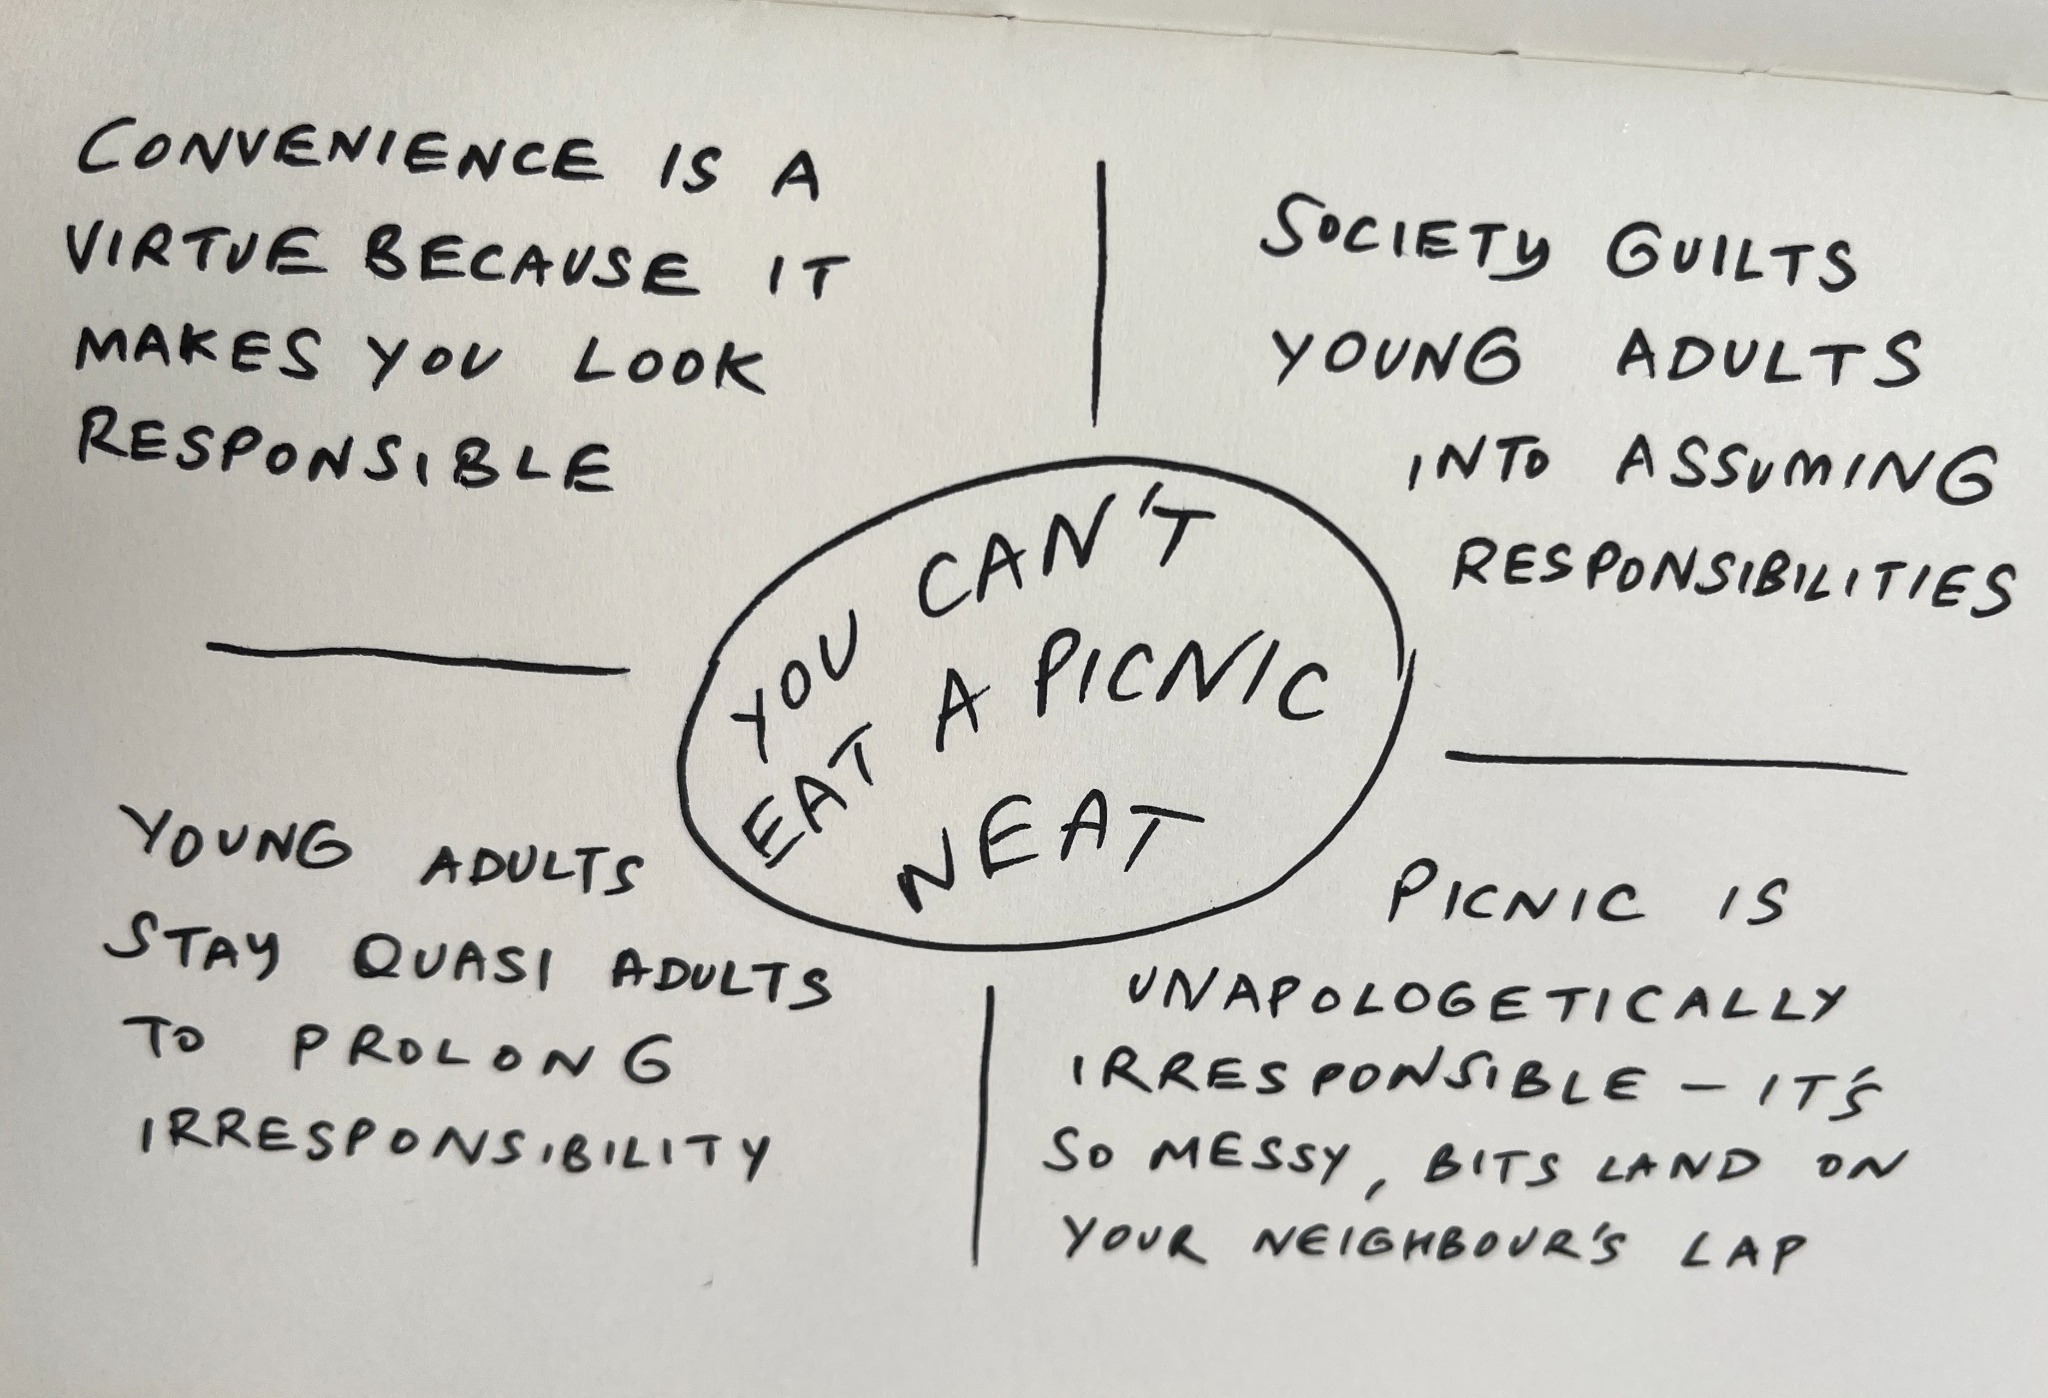 CONVENIENCE IS A
VIRTUE BECAUSE IT
MAKES YOU LOOK
RESPONSIBLE
SOCIETY GUILTS
YOUNG ADULTS
INTO ASSUMING
RESPONSIBILITIES
YOU CAN'T
EAT A PICNIC
NEAT
YOUNG ADULTS
STAY QUASI ADULTS
TO PROLONG
IRRESPONSIBILITY
PICNIC IS
UNAPOLOGETICALLY
IRRESPONSIBLE – IT'S
SO MESSY, BITS LAND ON
YOUR NEIGHBOUR'S LAP